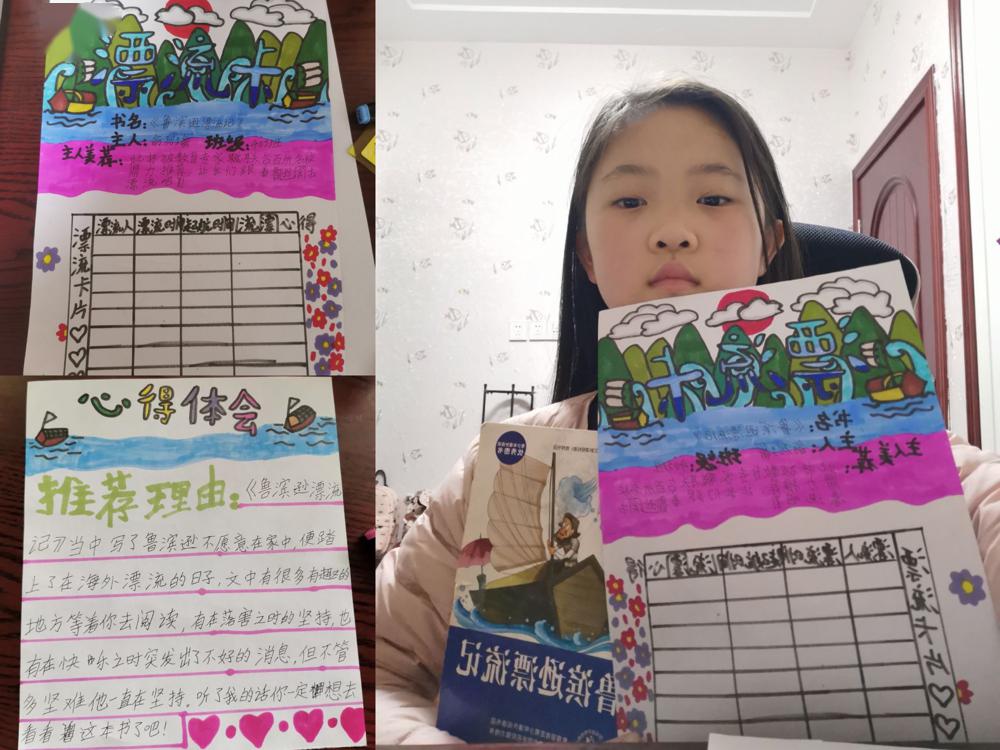 漂流卡
书名：《鲁滨逊漂流记》
主人： 班级：
主人美荐：此书被教育专家联
鼎力推荐，让我们跟着
漂流吧！
漂流卡片♡♡
漂流人 漂流时间 起航时间 漂流心得
心得体会
推荐理由：《鲁滨逊漂流
记》当中写了鲁滨逊不愿意在家中，便踏
上了在海外漂流的日子，文中有很多有趣的
地方等着你去阅读，有在落害之时的坚持，也
有在快乐之时突发出了不好的消息，但不管
多坚难他一直在坚持。听了我的话你一定想去
看看着这本书了吧！
漂流卡
书名：
《鲁滨逊漂流记》
主人：
班级：
主人美荐：
漂流卡片♡♡
漂流人 漂流时间 起航时间 漂流心得
优秀图书
鲁滨逊漂流记